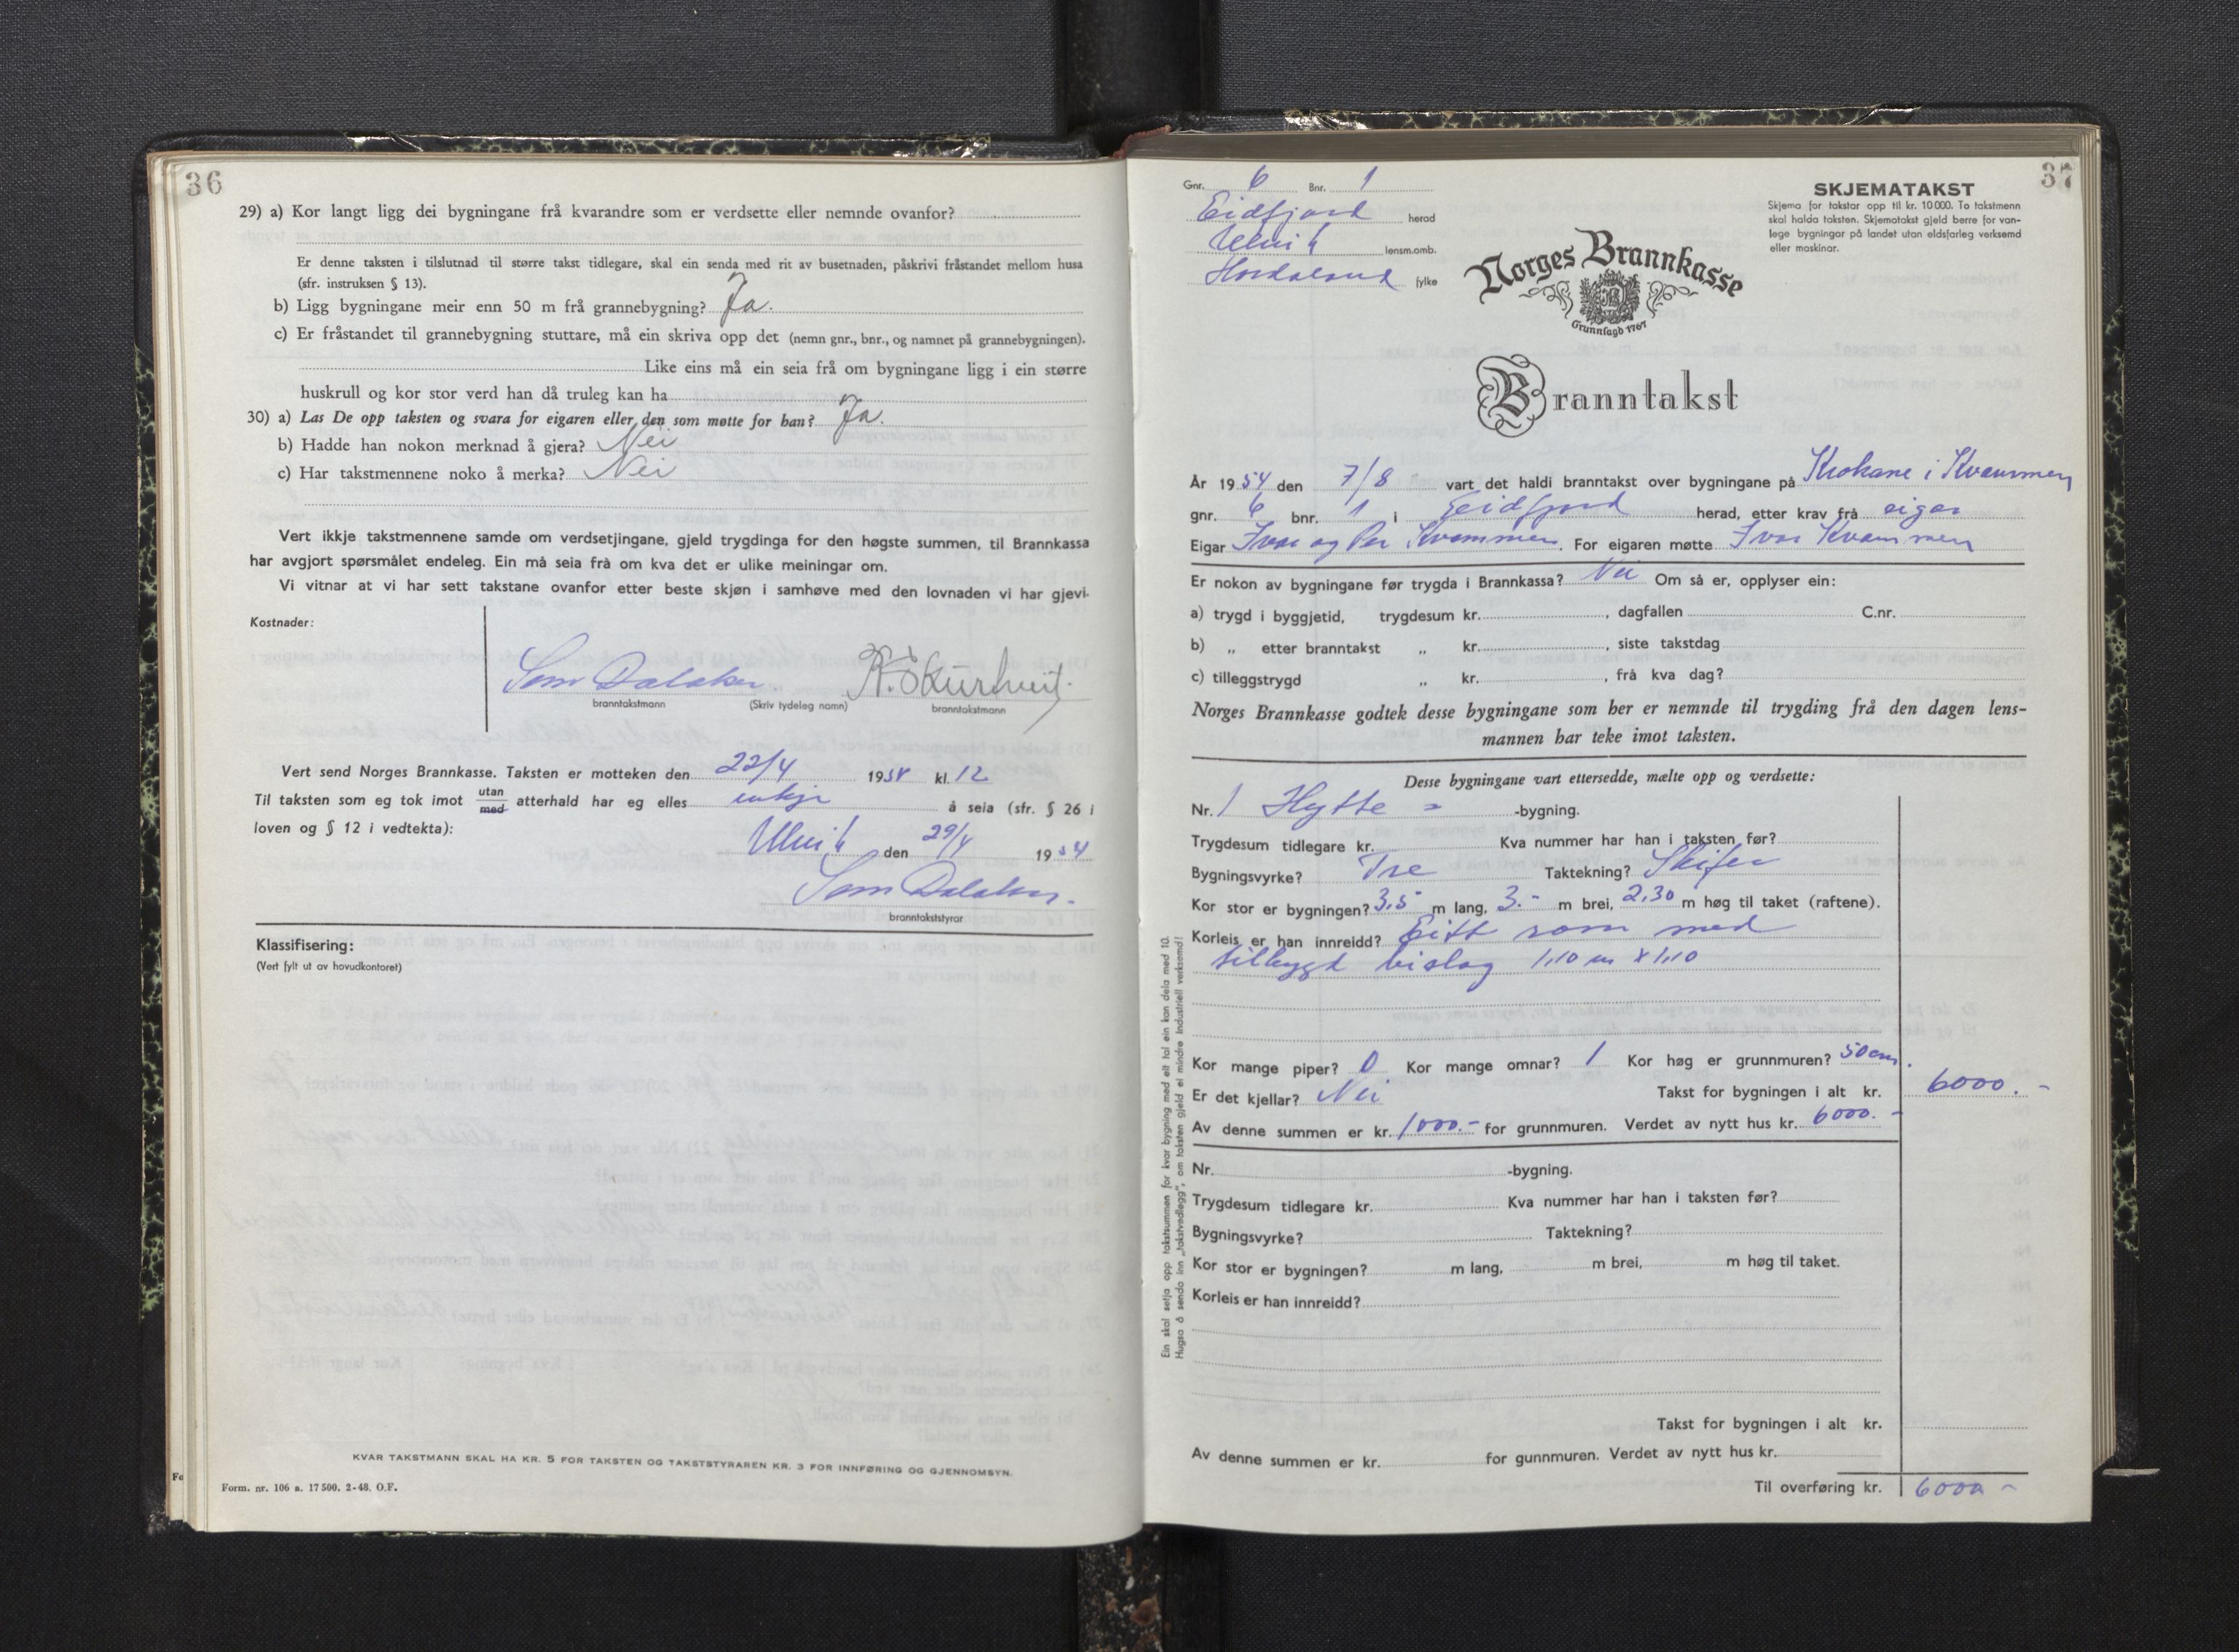 36
29) a) Kor langt ligg dei bygningane frå kvarandre som er verdsette eller nemnde ovanfor?
Er denne taksten i tilslutnad til større takst tidlegare, skal ein senda med rit av busetnaden, påskrivi fråstandet mellom husa
(sfr. instruksen § 13).
b) Ligg bygningane meir enn 50 m frå grannebygning? Ja.
c) Er fråstandet til grannebygning stuttare, må ein skriva opp det (nemn gnr., bnr., og namnet på grannebygningen).
Like eins må ein seia frå om bygningane ligg i ein større
huskrull og kor stor verd han då truleg kan ha
30) a) Las De opp taksten og svara for eigaren eller den som møtte for han? Ja.
b) Hadde han nokon merknad å gjera? Nei
c) Har takstmennene noko å merka? Nei
Vert ikkje takstmennene samde om verdsetjingane, gjeld trygdinga for den høgste summen, til Brannkassa
har avgjort spørsmålet endeleg. Ein må seia frå om kva det er ulike meiningar om.
Vi vitnar at vi har sett takstane ovanfor etter beste skjøn i samhøve med den lovnaden vi har gjevi.
Kostnader:
branntakstmann (Skriv tydeleg namn) branntakstmann
Vert send Norges Brannkasse. Taksten er motteken den 22/4 1954 kl. 12
Til taksten som eg tok imot utan/med atterhald har eg elles inkje å seia (sfr. § 26 i
loven og § 12 i vedtekta):
Ulvik den 29/4 1954
branntakststyrar
Klassifisering:
(Vert fylt ut av hovudkontoret)
KVAR TAKSTMANN SKAL HA KR. 5 FOR TAKSTEN OG TAKSTSTYRAREN KR. 3 FOR INNFØRING OG GJENNOMSYN.
Form. nr. 106 a. 17 500. 2-48. O.F.
37
Gnr. 6 Bnr. 1
Eidfjord herad
Ulvik lensm.omb.
Hordaland fylke
SKJEMATAKST
Skjema for takstar opp til kr. 10 000. To takstmenn
skal halda taksten. Skjematakst gjeld berre for van-
lege bygningar på landet utan eldsfarleg verksemd
eller maskinar.
Norges Brannkasse
Grunnlagd 1767
Branntakst
År 1954 den 7/8 vart det haldi branntakst over bygningane på Krokane i Kvammen
gnr. 6 bnr. 1 i Eidfjord herad, etter krav frå eigar
Eigar Ivar og Per Kvammen. For eigaren møtte Ivar Kvammen
Er nokon av bygningane før trygda i Brannkassa? Nei Om så er, opplyser ein:
a) trygd i byggjetid, trygdesum kr. , dagfallen C.nr.
b) „ etter branntakst „ kr. , siste takstdag
c) tilleggstrygd „ kr. , frå kva dag?
Norges Brannkasse godtek desse bygningane som her er nemnde til trygding frå den dagen lens-
mannen har teke imot taksten.
Desse bygningane vart ettersedde, mælte opp og verdsette:
Nr. 1 Hytte = -bygning.
Trygdesum tidlegare kr. Kva nummer har han i taksten før?
Bygningsvyrke? Tre Taktekning? Skifer
Kor stor er bygningen? 3,5 m lang, 3.- m brei, 2,30 m høg til taket (raftene).
Korleis er han innreidd? Eitt rom med
tilbygd bislag 1,10 m x 1,10
Kor mange piper? 0 Kor mange omnar? 1 Kor høg er grunnmuren? 50 cm.
Er det kjellar? Nei Takst for bygningen i alt kr. 6000.-
Av denne summen er kr. 1000.- for grunnmuren. Verdet av nytt hus kr. 6000.-
Nr. -bygning.
Trygdesum tidlegare kr. Kva nummer har han i taksten før?
Bygningsvyrke? Taktekning?
Kor stor er bygningen? m lang, m brei, m høg til taket.
Korleis er han innreidd?
Takst for bygningen i alt kr.
Av denne summen er kr. for gunnmuren. Verdet av nytt hus kr.
Til overføring kr. 6000 -
Ein skal setja opp takstsummen for kvar bygning med eit tal ein kan dela med 10.
Hugsa å senda inn „takstvedlegg", om taksten gjeld ei mindre industriell verksemd!